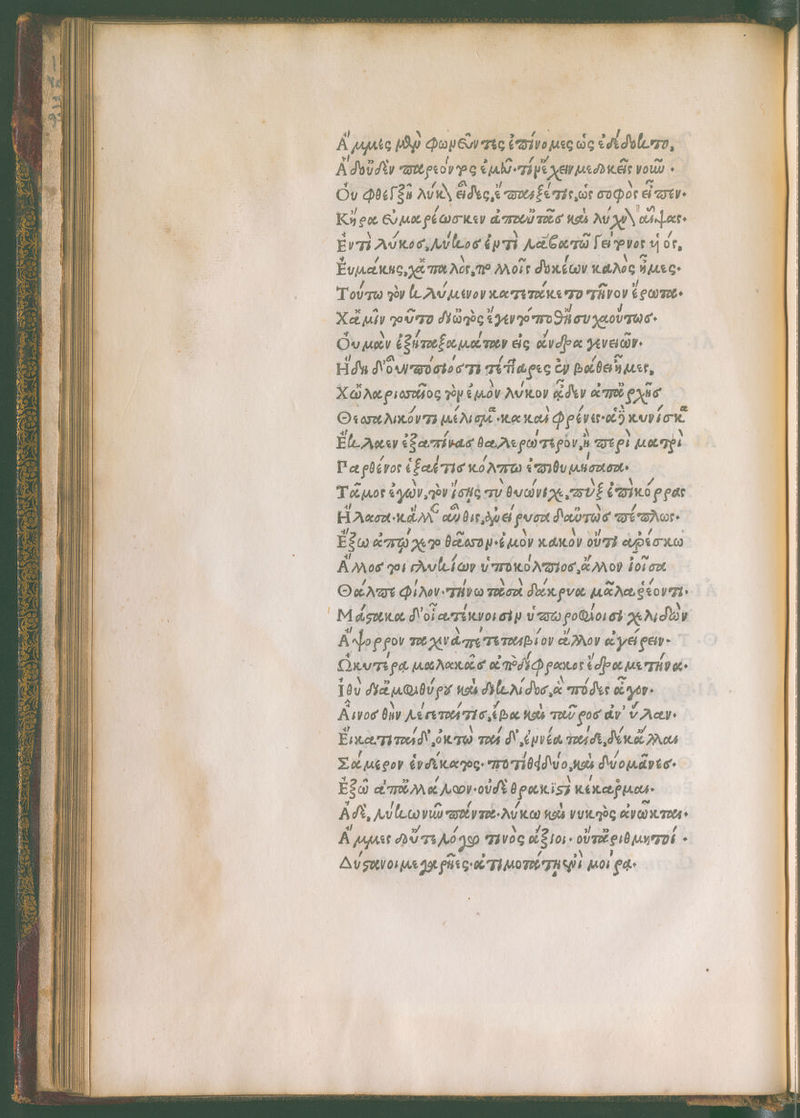 Ἄμμες μὲν φωνεῦντες ἐπίνομες ὡς ἐδέδοκτο,
Ἁ δ' οὐδὲν παρεόντος ἐμεῦ· τίν' ἔχειν με δοκεῖς νοῦν·
Οὐ φθεγξῇ λύκον εἶδες, ἔπαιξέ τις, ὡς σοφὸς εἶπεν·
Κἤρα εὐμαρέως κεν ἀπ' αὐτᾶς καὶ λύχνον ἇψας·
Ἐντὶ λύκος, λύκος ἐντὶ λάβα τῶ γείτονος υἱός,
Εὐμάκης, χἁπαλός, πολλοῖς δοκέων καλὸς ἦμες·
Τούτω τὸν κλύμενον κατετάκετο τῆνον ἔρωτα·
Χἁμῖν τοῦτο δι' ὠτὸς ἔγεντο ποθ' ἥσυχα οὕτως·
Οὐ μὰν ἐξήταξα μάταν εἰς ἄνδρα γενειῶν·
Ἤδη δ' ὦν πόσιός τι τέτταρες ἐν βάθει ἦμες,
Χὠ λαρισσαῖος τὸν ἐμὸν λύκον ᾖδεν ἀπ' ἀρχῆς
Θεσσαλικόν τι μέλισμα· κακαὶ φρένες· ἁ δὲ κυνίσκα
Ἔκλαεν ἐξαπίνας θαλερώτερον, ἢ περὶ ματρὶ
Παρθένος ἑξαέτις κόλπω ἐπιθυμήσασα·
Τᾶμος ἐγὼν, τὸν ἴσης τὺ θυώνιχε, πὺξ ἐπὶ κόρρας
Ἤλασα· κἄλλην αὖθις, ἀνείρυσα δ' αὑτὼς πέπλως·
Ἔξω ἀπῴχετο θᾶσσον· ἐμὸν κακὸν οὔ τι ἀρέσκω
Ἄλλος τοι γλυκίων ὑποκόλπιος, ἄλλον ἰοῖσα
Θάλπε φίλον· τήνω πᾶσα δάκρυα μᾶλα ῥέοντι·
Μάστακα δ' οἷα τέκνοισιν ὑπωροφίοισι χελιδὼν
Ἄψορρον ταχινὰ πέτεται βίον ἄλλον ἀγείρειν·
Ὠκυτέρα μαλακᾶς ἀπὸ δίφρακος ἔδραμε τήνα·
Ἰθὺ δι' ἀμφιθύρου καὶ δικλίδος, ᾇ πόδες ἆγον·
Αἶνος θὴν λέγεταί τις, ἔβα καὶ ταῦρος ἀν' ὕλαν·
Εἴκατι ταὶ δ', ὀκτὼ ταὶ δ', ἐννέα ταὶ δὲ, δέκ' ἄλλαι
Σάμερον ἑνδέκατος· ποτίθει δύο, καὶ δύο μᾶνες·
Ἐξῶ ἀπ' ἀλλάλων· οὐδὲ θρακιστὶ κέκαρμαι·
Ἁ δὲ, λύκω νῦν πάντα· λύκω καὶ νυκτὸς ἀνῶκται·
Ἄμμες δ' οὔτε λόγω τινὸς ἄξιοι· οὔτ' ἀριθμητοί ·
Δύστανοι μεγαρῆες· ἀτιμοτάτῃ ἐνὶ μοίρᾳ·